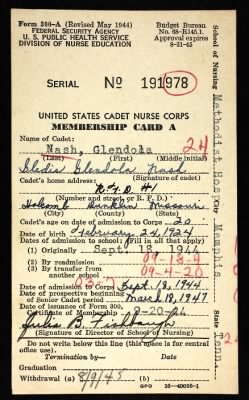 Form 300-A (Revised May 1944)
FEDERAL SECURITY AGENCY
U. S. PUBLIC HEALTH SERVICE
DIVISION OF NURSE EDUCATION
Budget Bureau
No. 68-R145.1.
Approval expires
8-31-45
SERIAL No 191978
UNITED STATES CADET NURSE CORPS
MEMBERSHIP CARD A
Name of Cadet: 24
Nash, Glendola
(Last) (First) (Middle initial)
Glendola Nash
(Signature of cadet)
Cadet's home address:
R.F.D. #1
(Number and street, or R. F. D.)
Holcomb Dunklin Missouri
(City) (County) (State)
Cadet's age on date of admission to Corps 20
Date of birth February 24, 1924
Dates of admission to school: (Fill in all that apply)
(1) Originally Sept. 18, 1944
(2) By readmission 09-18-4
(3) By transfer from another school 09-4-20
Date of admission to Corps Sept. 18, 1944
Date of prospective beginning of Senior Cadet period March 18, 1947
Date of issuance of Form 300, Certificate of Membership -20-44
Julia B. Fishbaugh
(Signature of Director of School of Nursing)
Do not write below this line (this space is for central office use).
Termination by— Date
Graduation
Withdrawal (a) 8/9/45
GPO 16-40095-1
School of Nursing Methodist Hos City Memphis State Tenn.